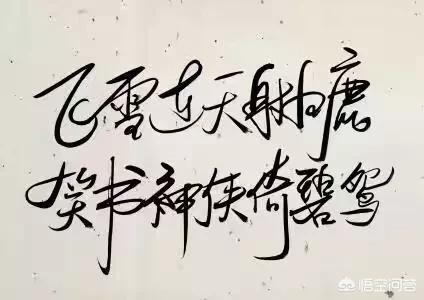 飞雪连天射白鹿
笑书神侠倚碧鸳
悟空问答